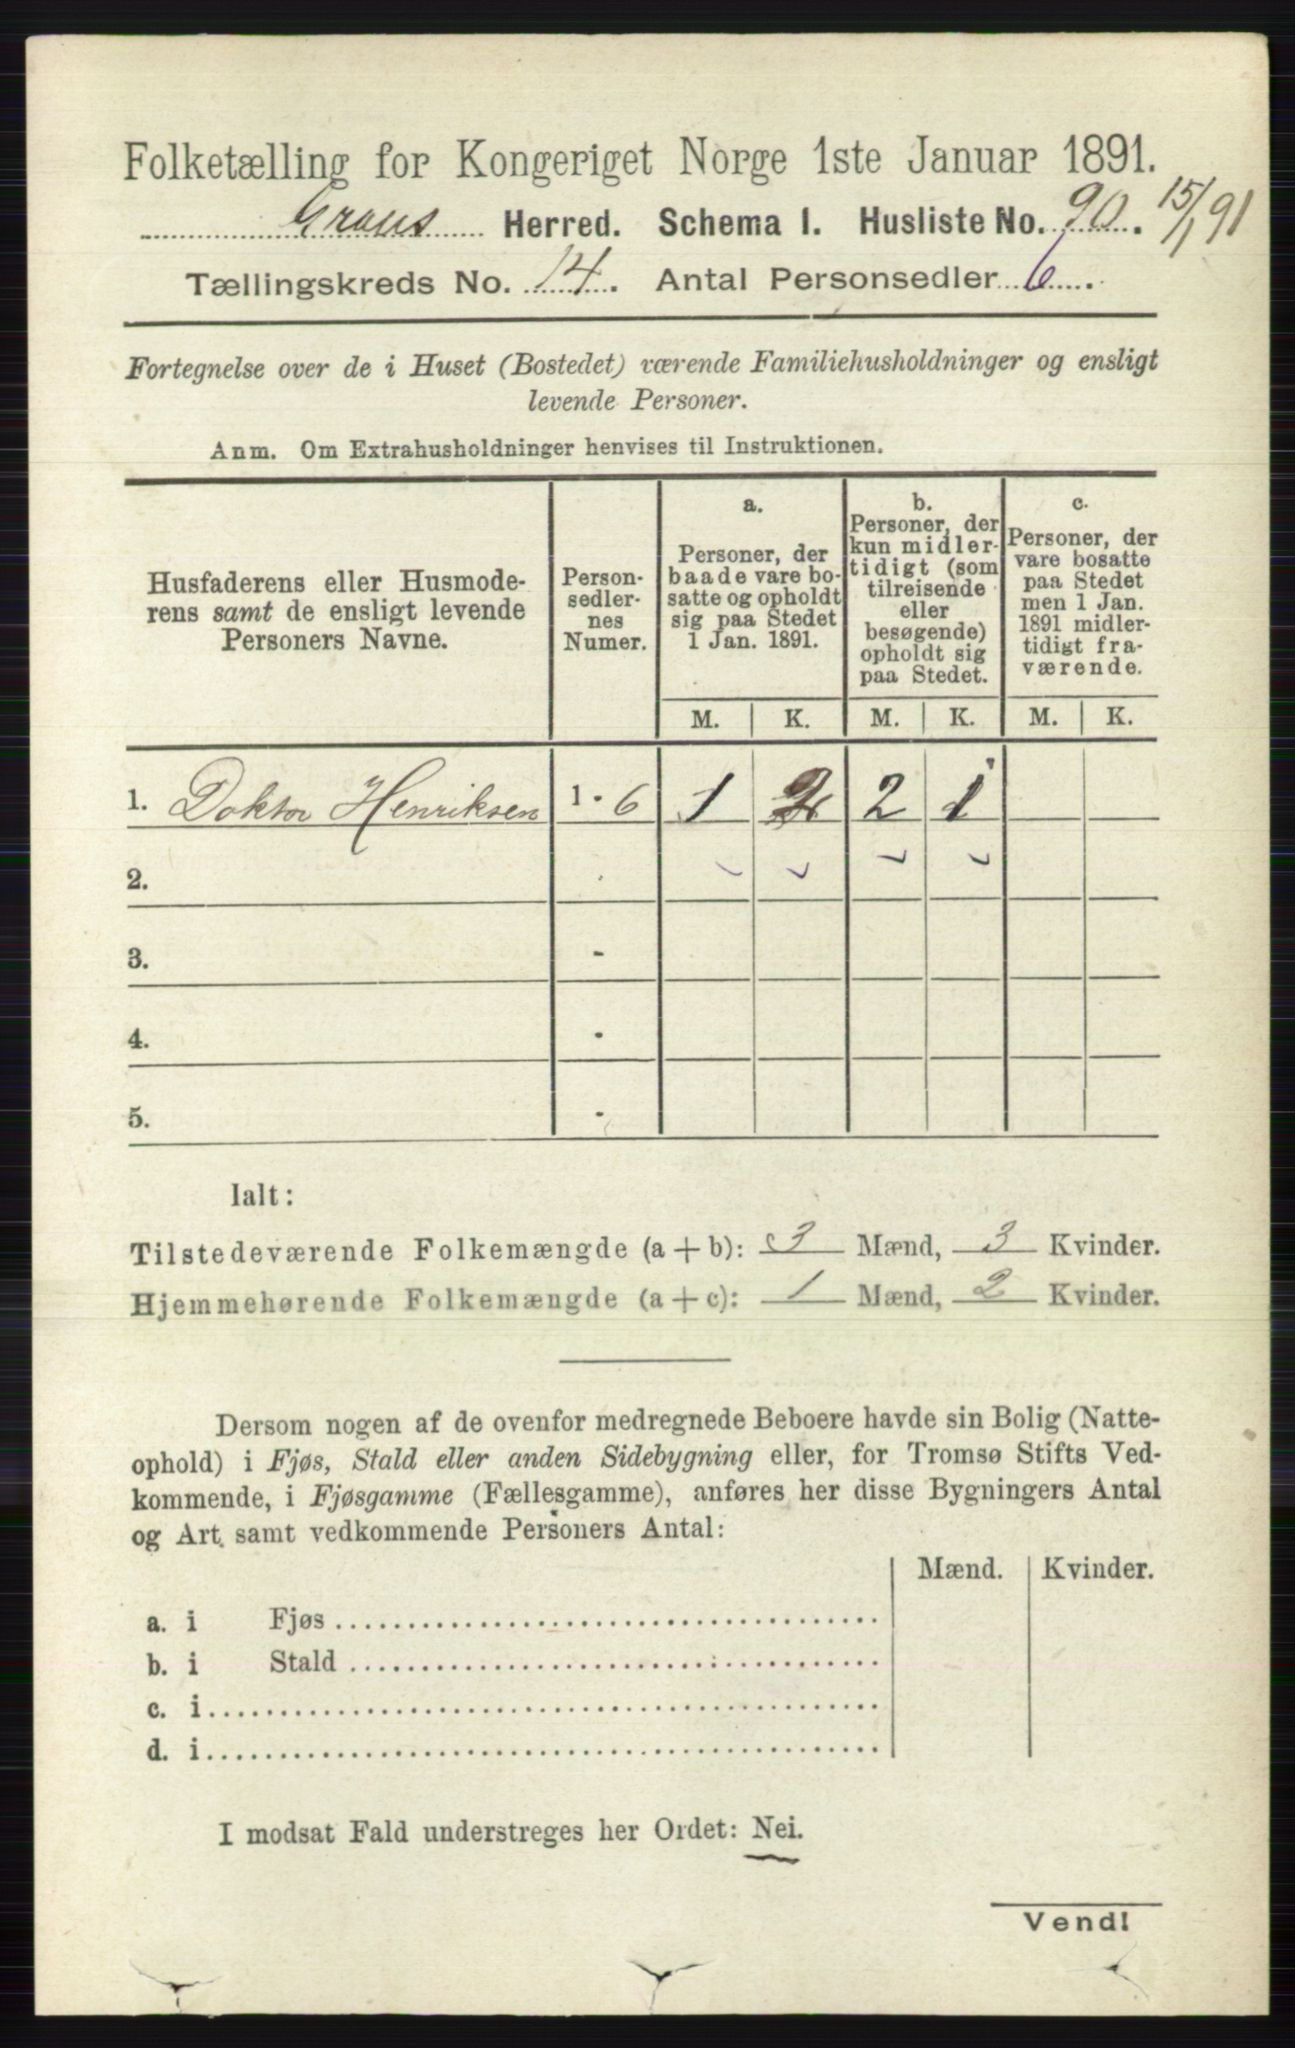 Folketælling for Kongeriget Norge 1ste Januar 1891.
Grans Herred. Schema I. Husliste No. 90. 15/1 91
Tællingskreds No. 14. Antal Personsedler 6.
Fortegnelse over de i Huset (Bostedet) værende Familiehusholdninger og ensligt
levende Personer.
Anm. Om Extrahusholdninger henvises til Instruktionen.
Husfaderens eller Husmode-
rens samt de ensligt levende
Personers Navne.
Person-
sedler-
nes
Numer.
a.
Personer, der
baade vare bo-
satte og opholdt
sig paa Stedet
1 Jan. 1891.
b.
Personer, der
kun midler-
tidigt (som
tilreisende
eller
besøgende)
opholdt sig
paa Stedet.
c.
Personer, der
vare bosatte
paa Stedet
men 1 Jan.
1891 midler-
tidigt fra-
værende.
M. K. M. K. M. K.
1. Doktor Henriksen 1 - 6 1 2 2 1
2.
3. -
4. -
5. -
Ialt:
Tilstedeværende Folkemængde (a + b): 3 Mænd, 3 Kvinder.
Hjemmehørende Folkemængde (a + c): 1 Mænd, 2 Kvinder.
Dersom nogen af de ovenfor medregnede Beboere havde sin Bolig (Natte-
ophold) i Fjøs, Stald eller anden Sidebygning eller, for Tromsø Stifts Ved-
kommende, i Fjøsgamme (Fællesgamme), anføres her disse Bygningers Antal
og Art samt vedkommende Personers Antal:
Mænd. Kvinder.
a. i Fjøs
b. i Stald
c. i
d. i
I modsat Fald understreges her Ordet: Nei.
Vend!